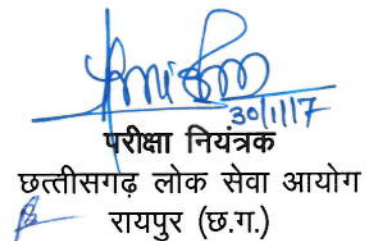 30/1/17
परीक्षा नियंत्रक
छत्तीसगढ़ लोक सेवा आयोग
रायपुर (छ.ग.)